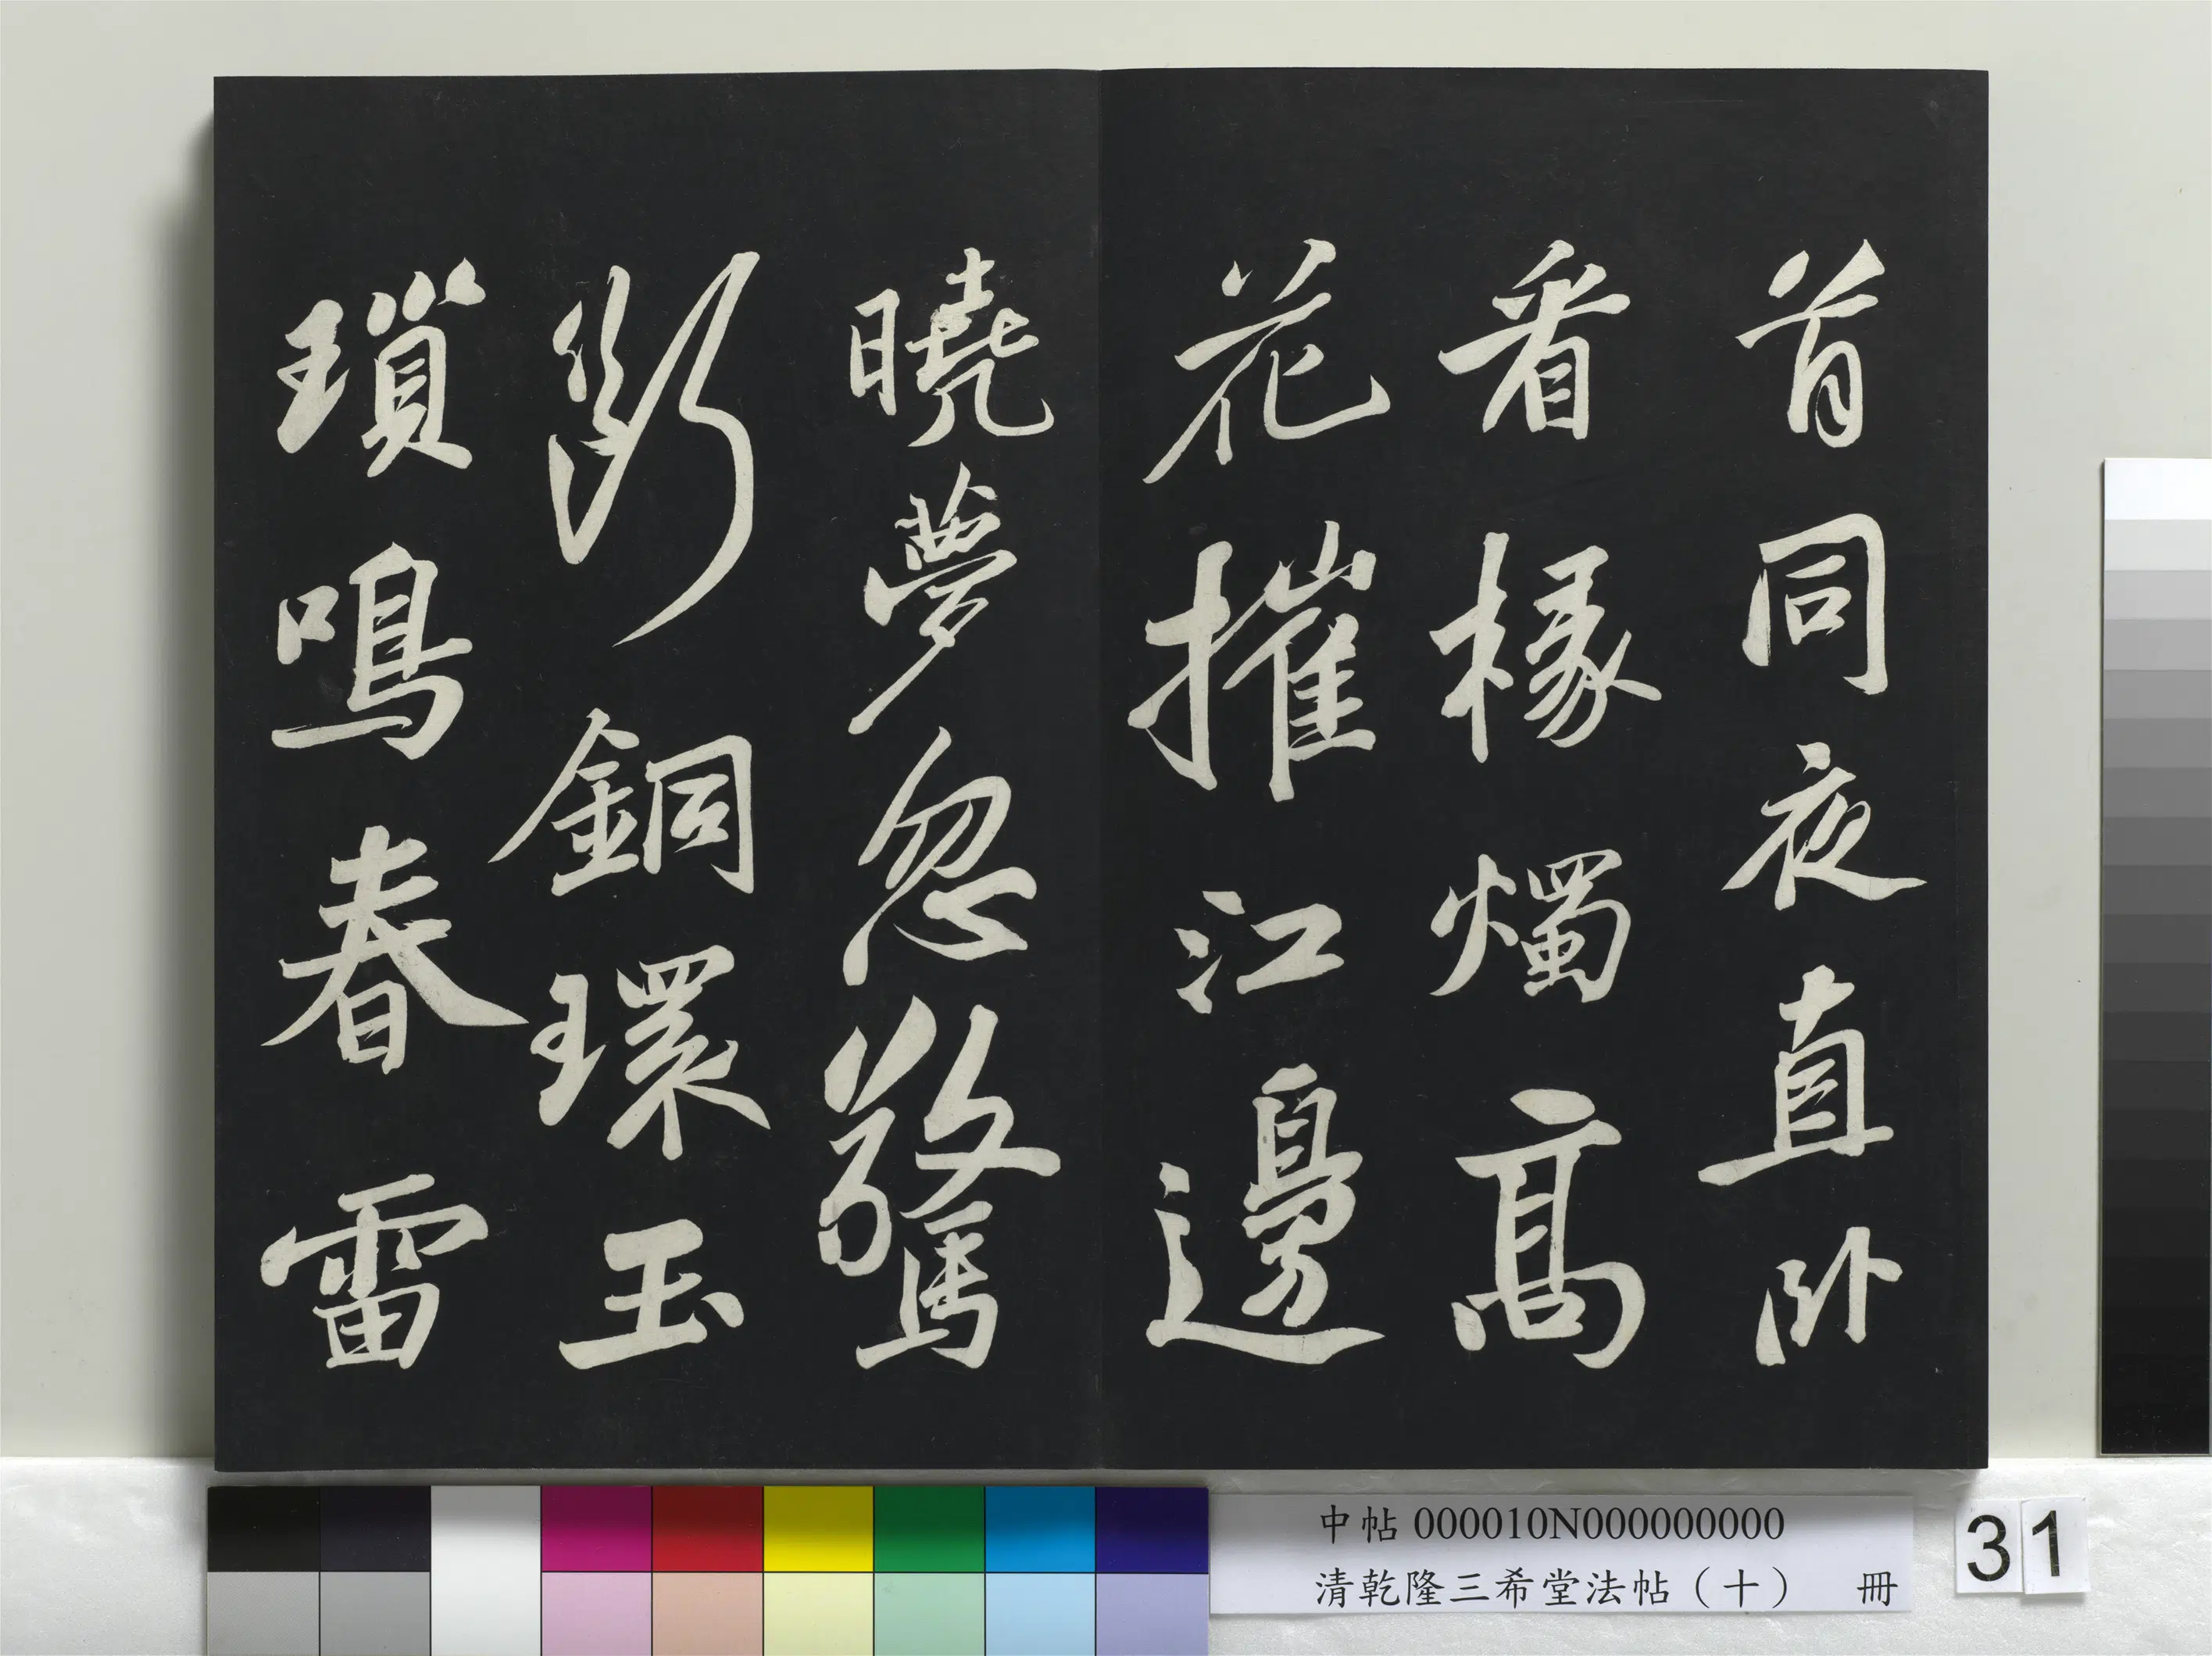 首同夜直卧
看椽燭高
花摧江邊
曉夢忽驚
斷銅環玉
瑣鳴春雷
中帖 000010N000000000
清乾隆三希堂法帖（十） 冊
31